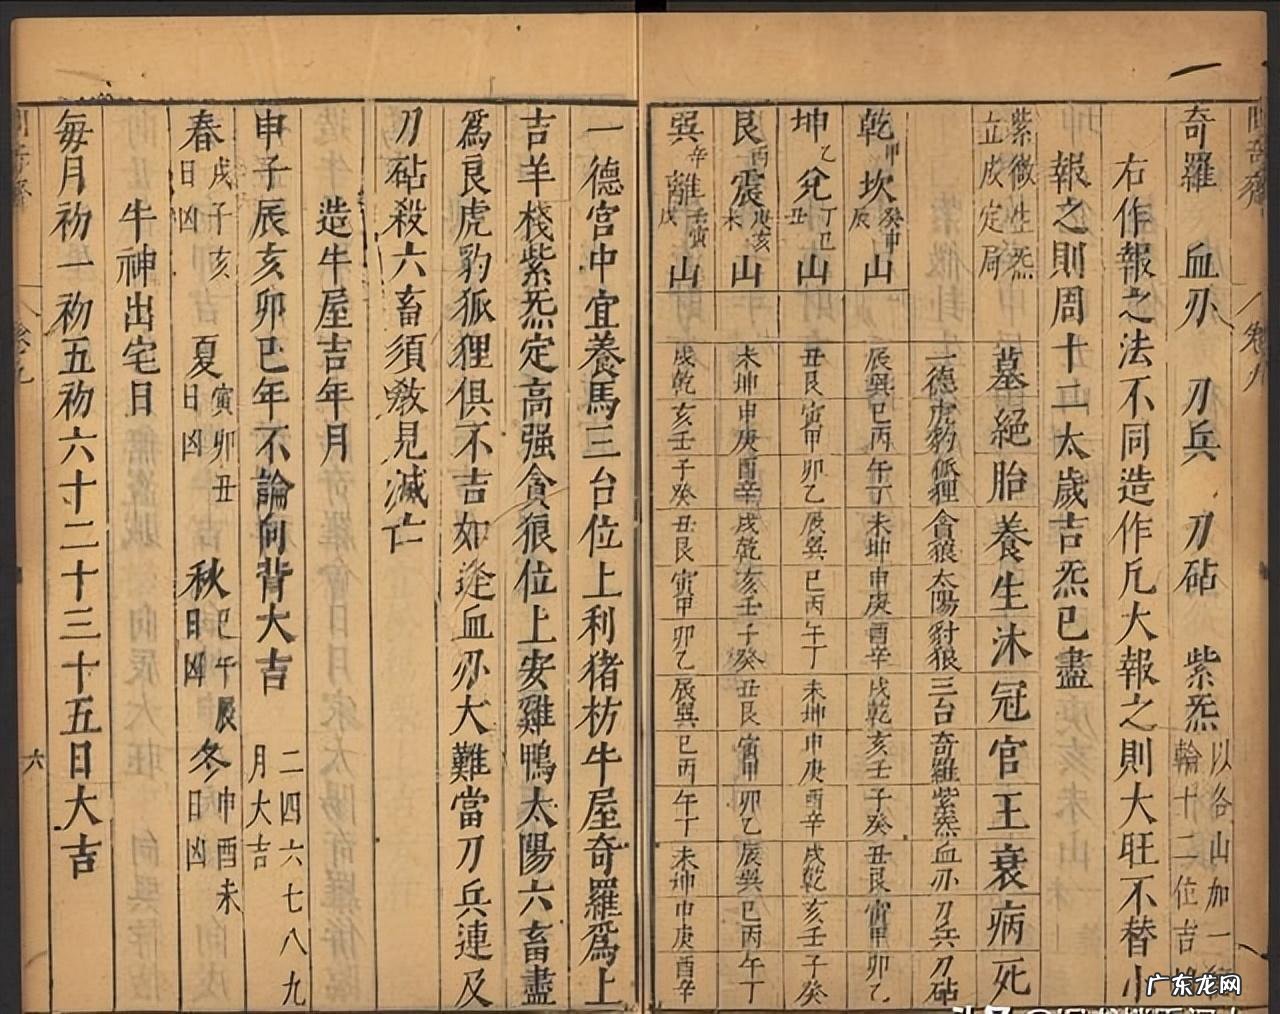 奇羅　血刃　刀兵　刀砧　紫炁　以各山加一
輪十二位吉
右作報之法不同造作凡大報之則大旺不替小
報之則周十二太歲吉炁已盡
紫微生炁
立成定局
墓絕胎養生沐冠官王衰病死
一德 虎豹 狐狸 貪狼 太陽 豺狼 三台 奇羅 紫炁 血刃 刀兵 刀砧
乾甲坎癸申辰山 辰巽 巳丙 午丁 未坤 申庚 酉辛 戌乾 亥壬 子癸 丑艮 寅甲 卯乙
坤乙兌丁巳丑山 丑艮 寅甲 卯乙 辰巽 巳丙 午丁 未坤 申庚 酉辛 戌乾 亥壬 子癸
艮丙震庚亥未山 未坤 申庚 酉辛 戌乾 亥壬 子癸 丑艮 寅甲 卯乙 辰巽 巳丙 午丁
巽辛離壬寅戌山 戌乾 亥壬 子癸 丑艮 寅甲 卯乙 辰巽 巳丙 午丁 未坤 申庚 酉辛
一德宮中宜養馬三台位上利猪枋牛屋奇羅爲上
吉羊棧紫炁定高强貪狼位上安雞鴨太陽六畜盡
爲良虎豹狐狸俱不吉如逢血刃大難當刀兵連及
刀砧殺六畜須敎見滅亡
造牛屋吉年月
申子辰亥卯巳年不論向背大吉　二四六七八九
月大吉
春戌子亥日凶　夏寅卯丑日凶　秋巳午辰日凶　冬申酉未日凶
牛神出宅日
每月初一初五初六十二十三十五日大吉
卷九
六
广东龙网